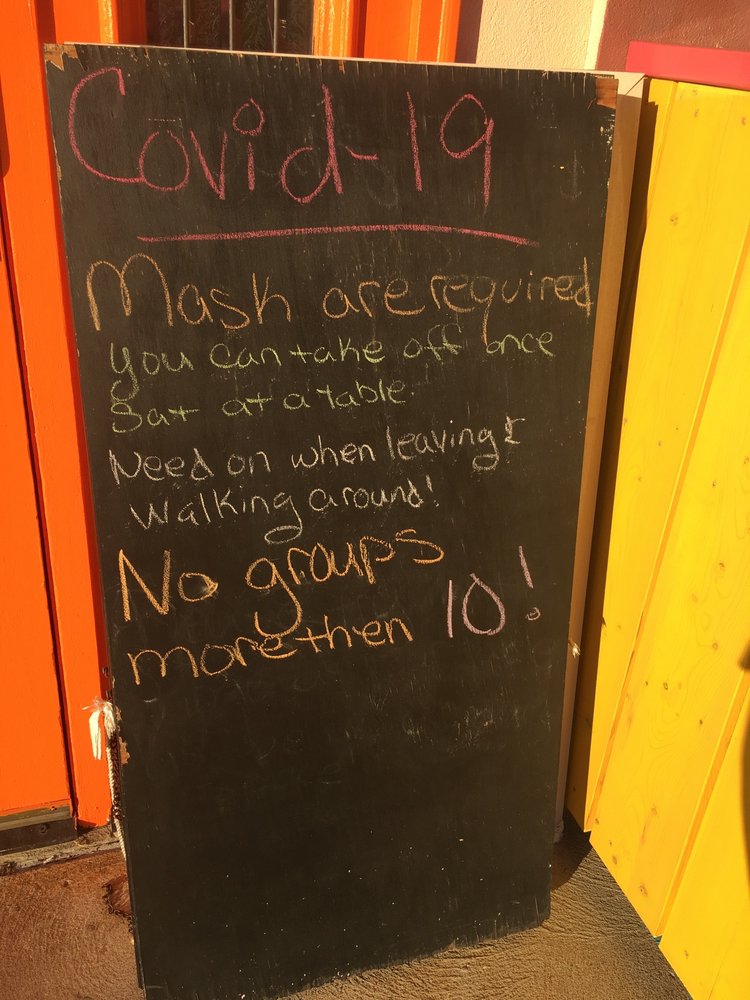 Covid-19
Mask are required
you can take off once
Sat at a table.
Need on when leaving &
Walking around!
No groups
more then 10!